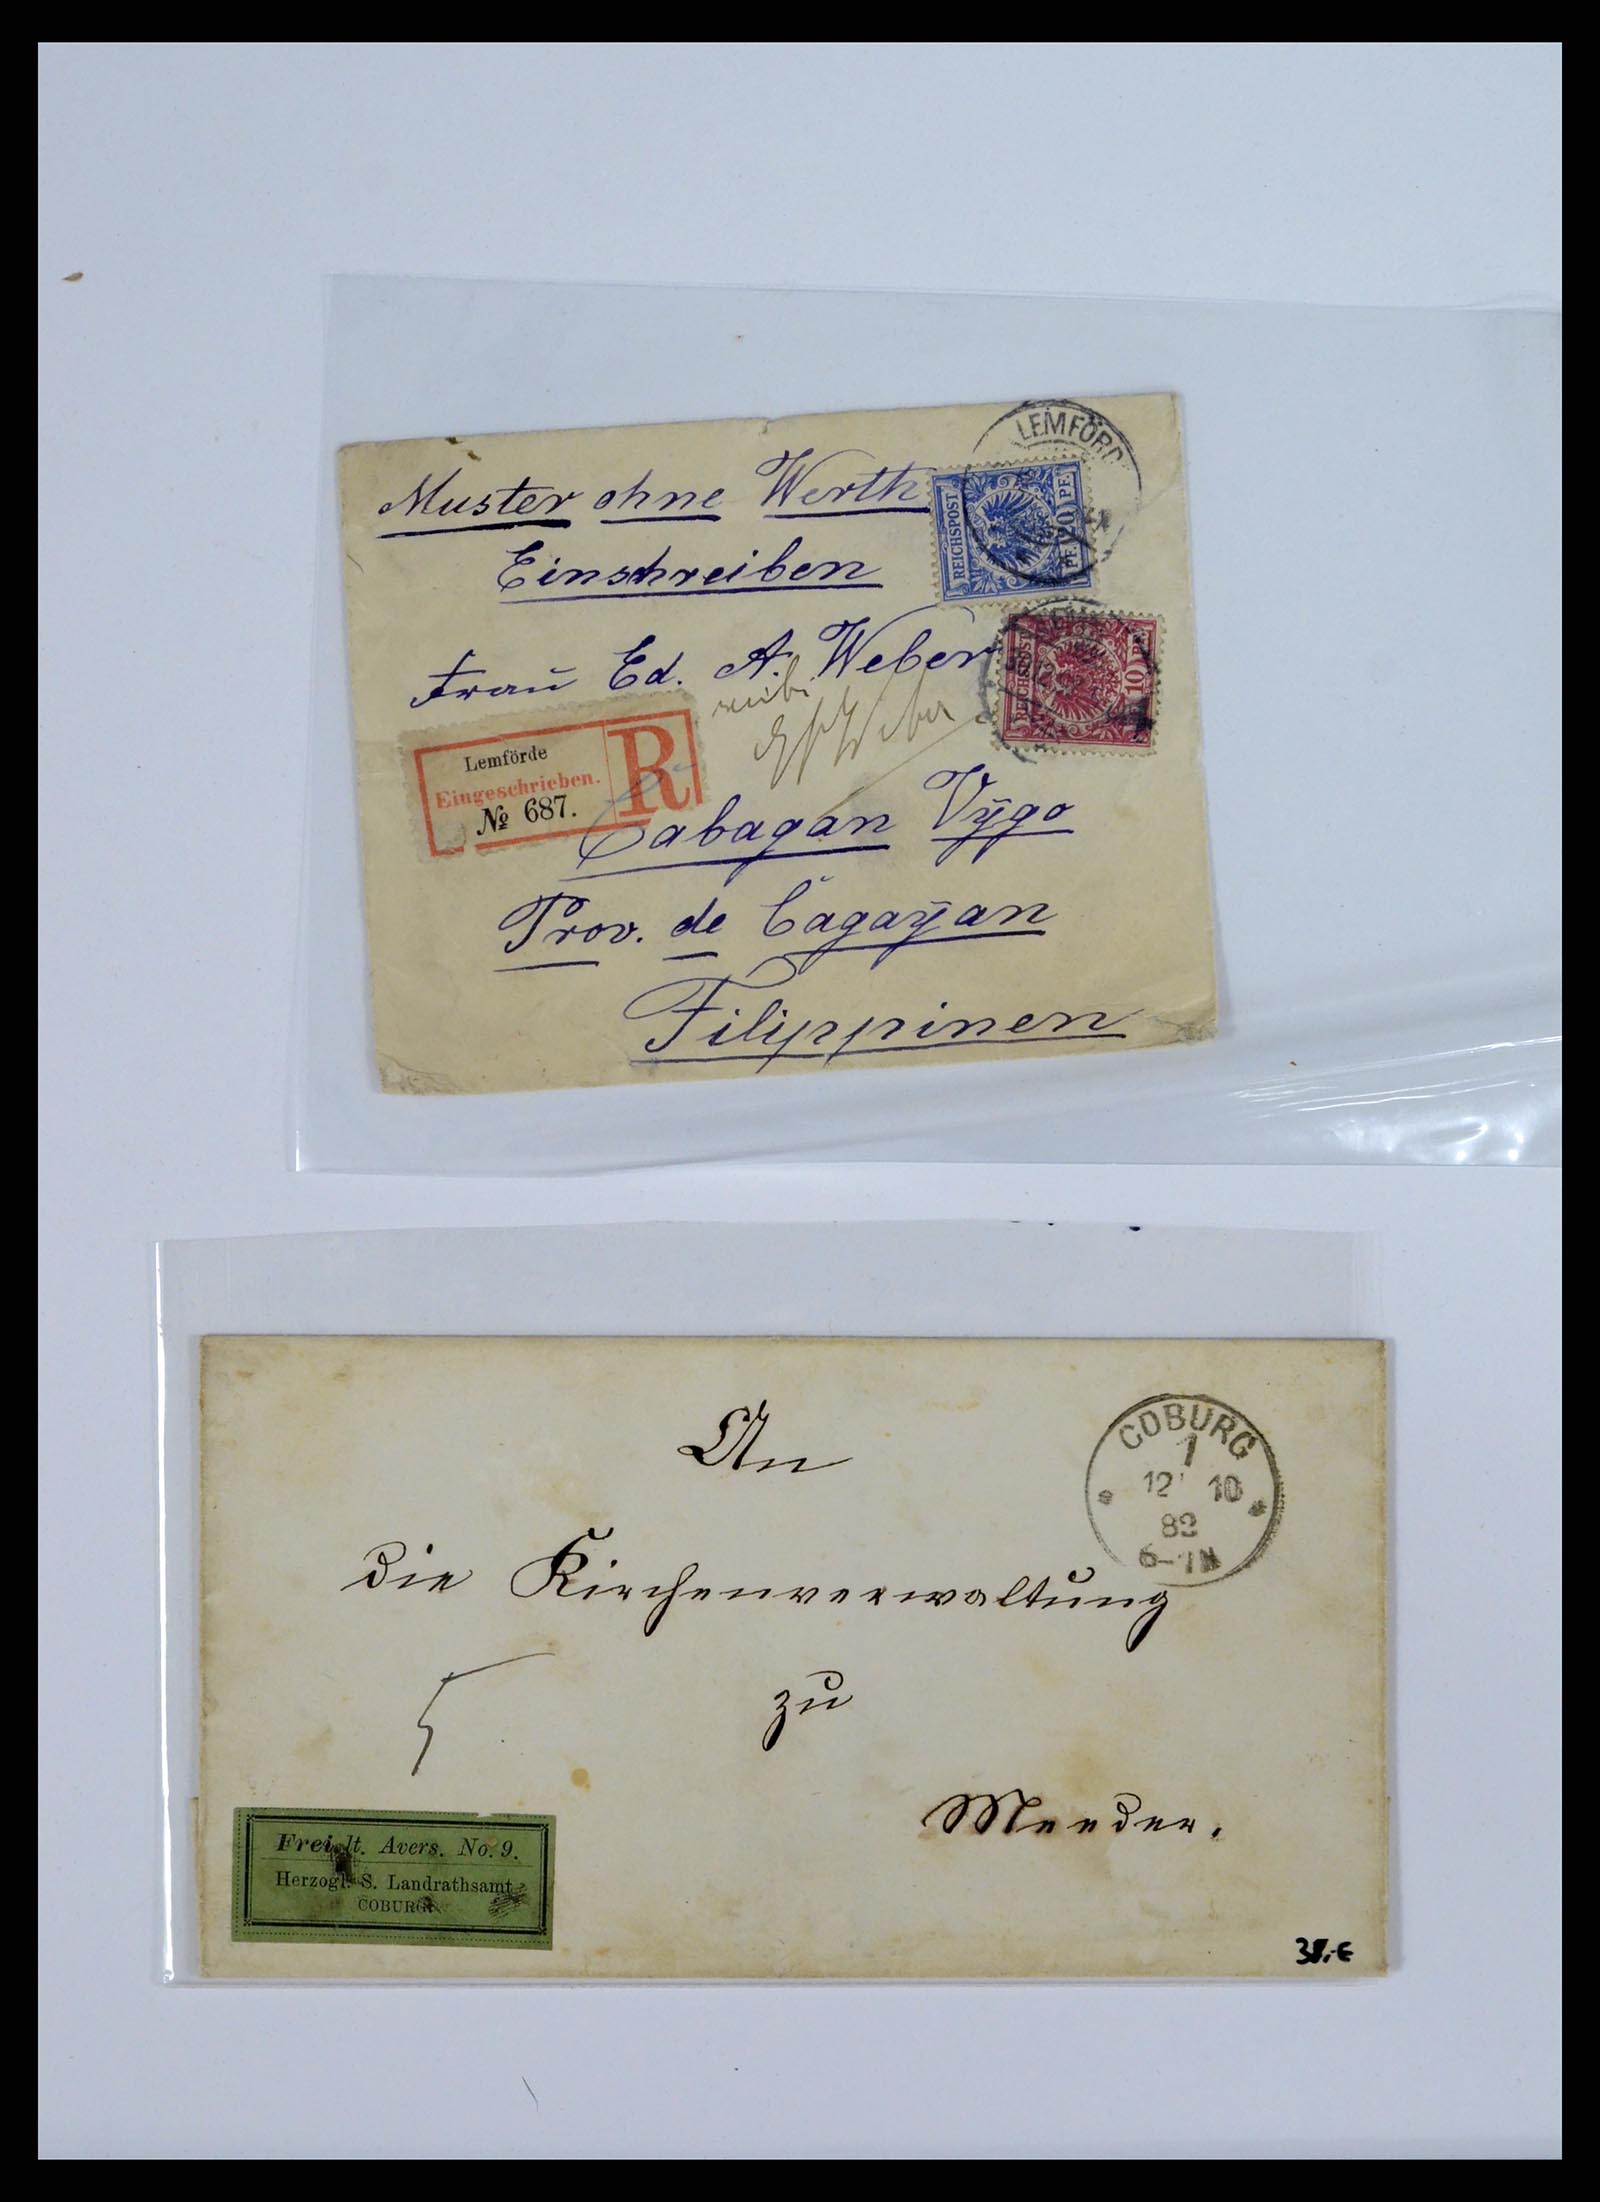 Muster ohne Werth
Einschreiben
LEMFÖRD
REICHSPOST
20 PF.
PF.
Frau Ed. A. Weber
REICHSPOST
10 PF.
Lemförde
Eingeschrieben.
№ 687.
R
Weber
Cabagan Vÿgo
Prov. de Cagaÿan
Filippinen
COBURG
1
12 10
6-7N
An
die Kirchenverwaltung
5
zu
Meeder.
Frei lt. Avers. No. 9.
Herzogl. S. Landrathsamt
COBURG